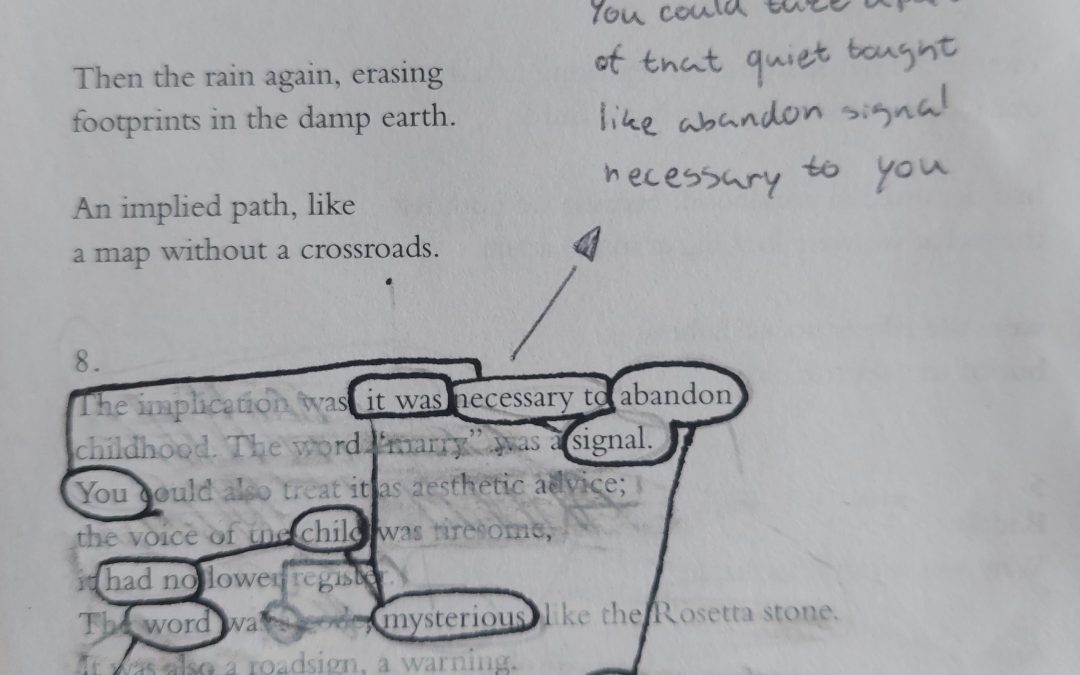 You could take a part
of that quiet bought
like abandon signal
necessary to you
Then the rain again, erasing
footprints in the damp earth.
An implied path, like
a map without a crossroads.
8.
The implication was it was necessary to abandon
childhood. The word “marry” was a signal.
You could also treat it as aesthetic advice;
the voice of the child was tiresome,
it had no lower register.
The word was a code, mysterious, like the Rosetta stone.
It was also a roadsign, a warning.